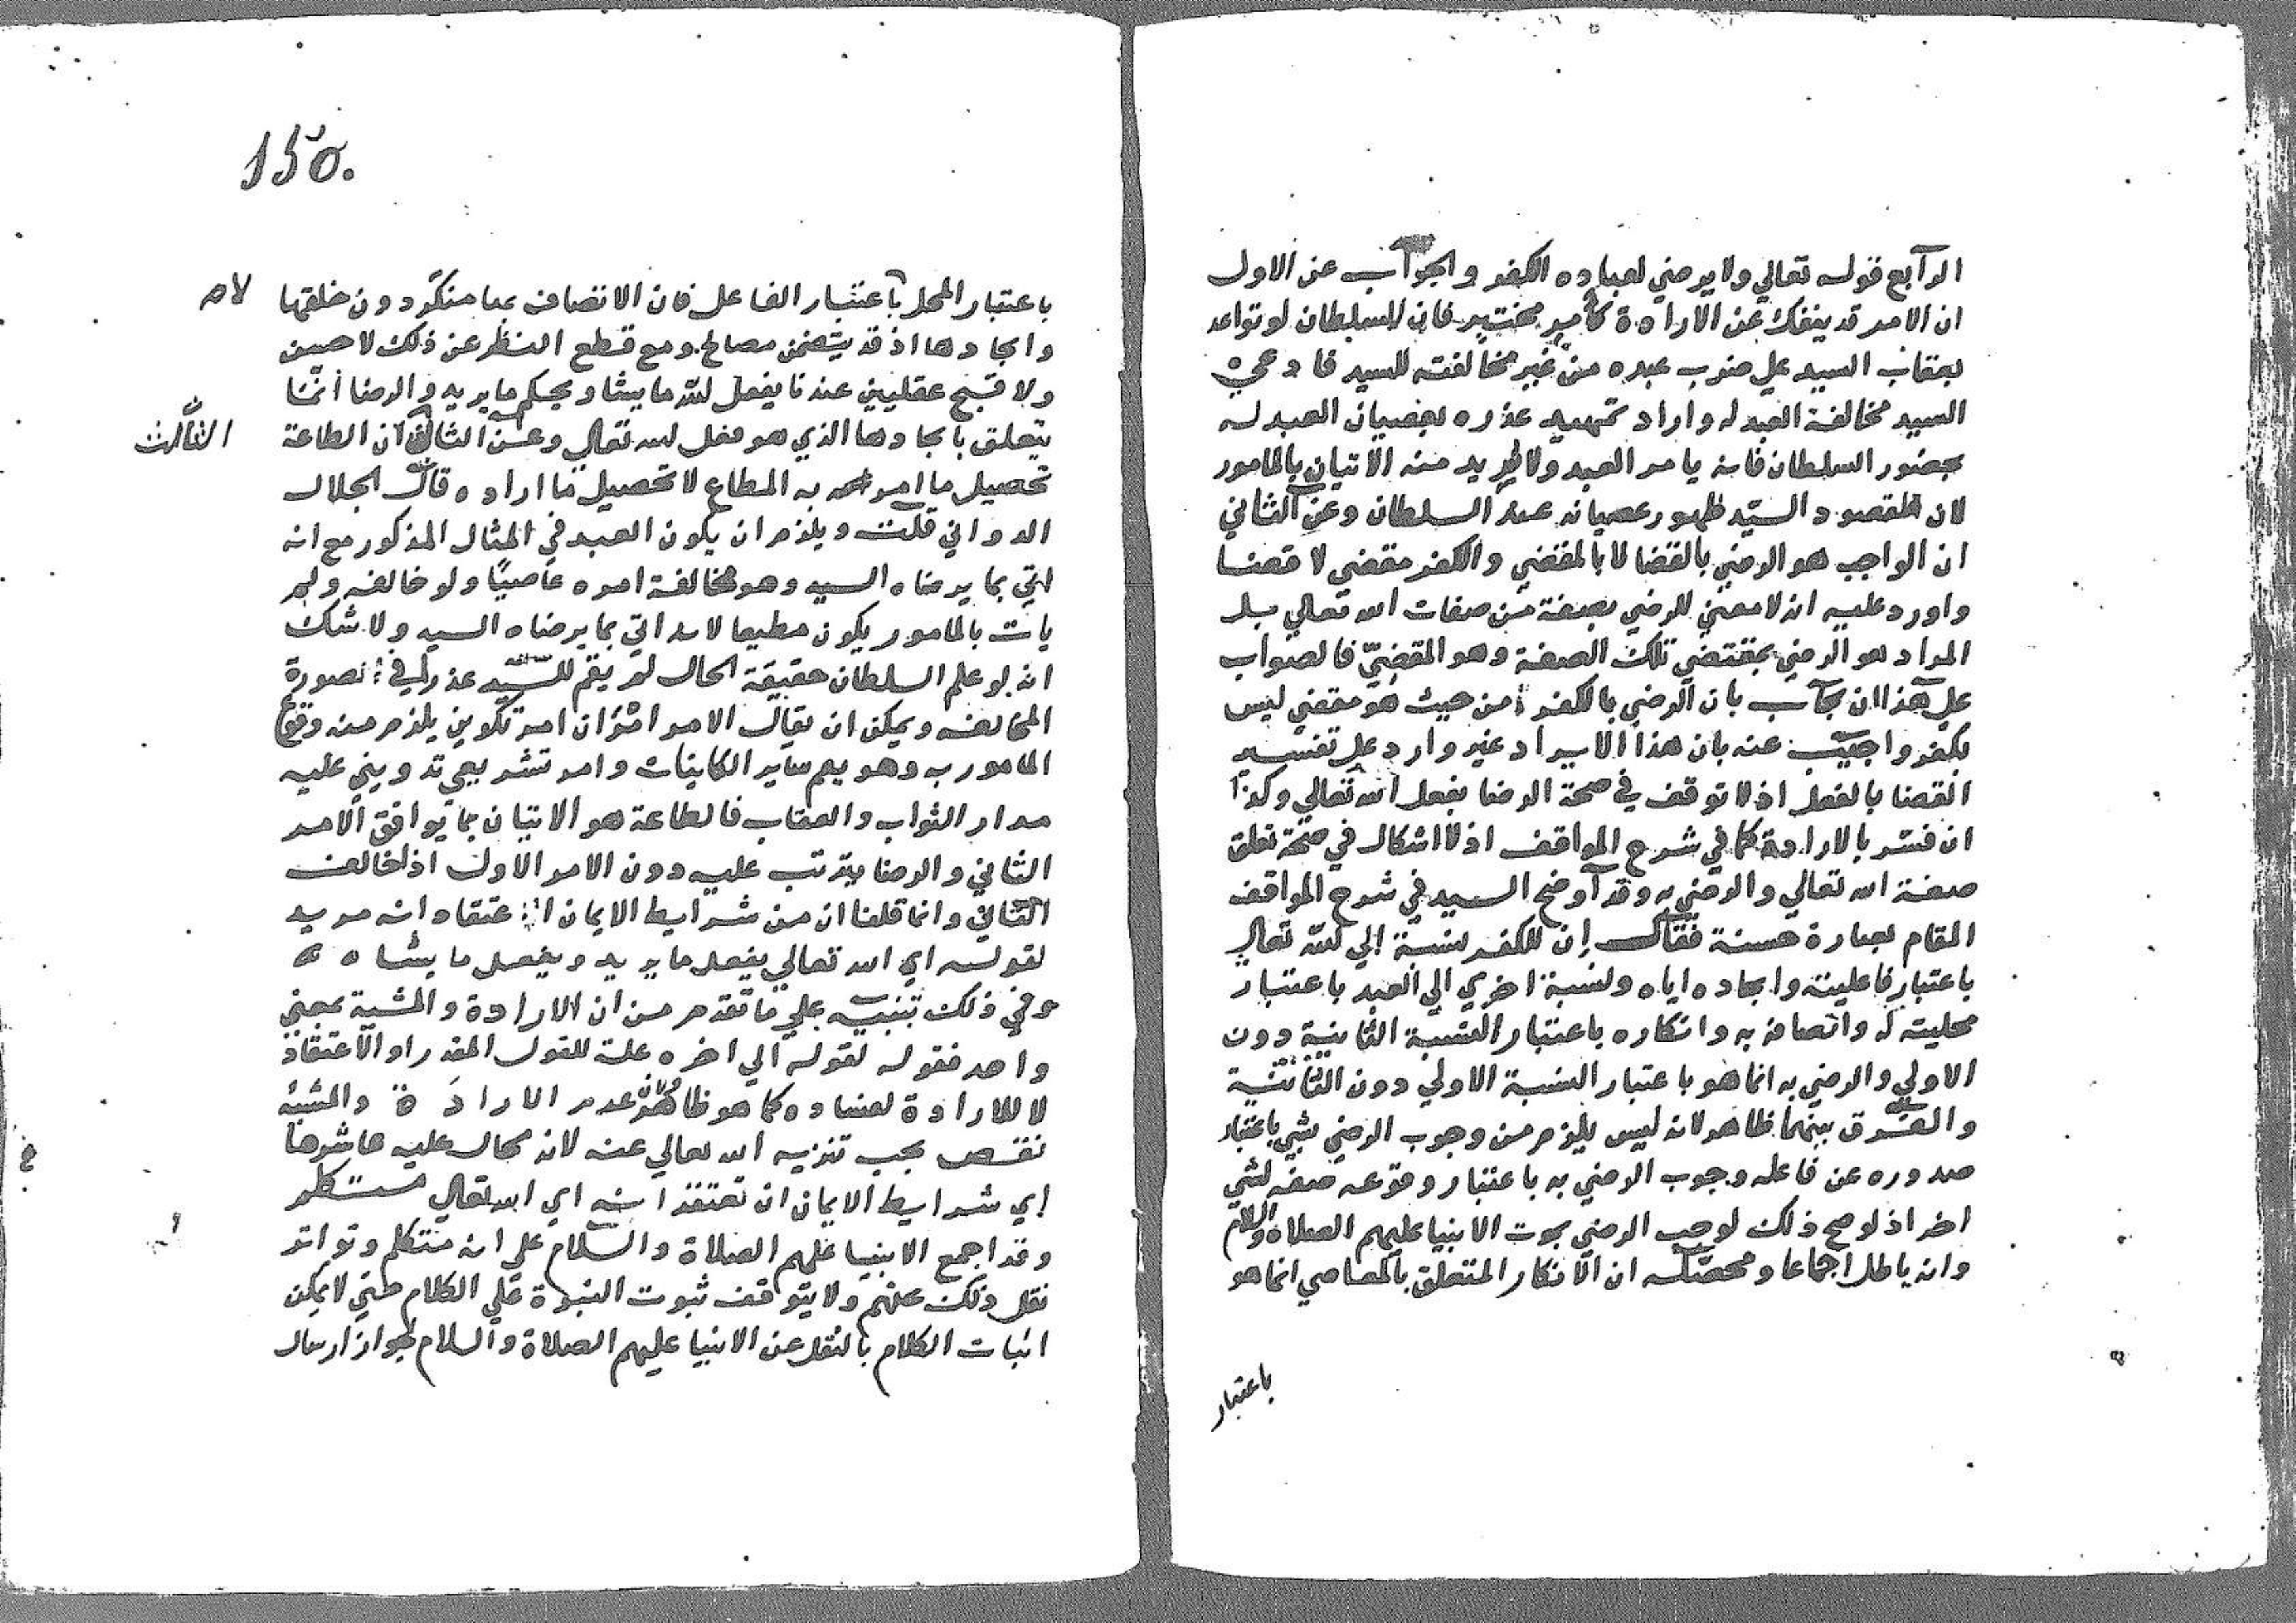 الرابع قوله تعالي ولا يرضي لعباده الكفر والجواب عن الاول
ان الامر قد ينفك عن الارادة كامر مختبر فان السلطان لو تواعد
بعقاب السيد علي ضرب عبده من غير مخالفته للسيد فادعي
السيد مخالفة العبد له واراد تمهيد عذره بعصيان العبد له
بحضور السلطان فانه يامر العبد ولا يريد منه الاتيان بالمامور
لان مقصود السيد ظهور عصيانه عند السلطان وعن الثاني
ان الواجب هو الرضي بالقضا لا بالمقضي والكفر مقضي لا قضا
واورد عليه انه لا معني للرضي بصفة من صفات الله تعالي بل
المراد هو الرضي بمقتضي تلك الصفة وهو المقضي فالصواب
علي هذا ان يجاب بان الرضي بالكفر من حيث هو مقضي ليس
بكفر واجيب عنه بان هذا الايراد غير وارد علي تفسير
القضا بالفعل اذ لا توقف في صحة الرضا بفعل الله تعالي وكذا
ان فسر بالارادة كما في شرح المواقف اذ لا اشكال في صحة تعلق
صفة الله تعالي والرضي به وقد اوضح السيد في شرح المواقف
المقام بعبارة حسنة فقال ان للكفر نسبة الي الله تعالي
باعتبار فاعليته وايجاده اياه ونسبة اخري الي العبد باعتبار
محليته له واتصافه به وانكاره باعتبار النسبة الثانية دون
الاولي والرضي به انما هو باعتبار النسبة الاولي دون الثانية
والفرق بينهما ظاهر لانه ليس يلزم من وجوب الرضي بشي باعتبار
صدوره عن فاعله وجوب الرضي به باعتبار وقوعه صفة لشي
اخر اذ لو صح ذلك لوجب الرضي بموت الانبيا عليهم الصلاة والسلام
وانه باطل اجماعا ومحصله ان الانكار المتعلق بالمعاصي انما هو
باعتبار
150.
باعتبار المحل لا باعتبار الفاعل فان الاتصاف بها منكر دون خلقها
وايجادها اذ قد يتضمن مصالح ومع قطع النظر عن ذلك لا حسن
ولا قبح عقليين عندنا يفعل الله ما يشا ويحكم ما يريد والرضا انما
يتعلق بايجادها الذي هو فعل الله تعالي وعن الثالث ان الطاعة
الثالث
تحصيل ما امر به المطاع لا تحصيل ما اراده قال الجلال
الدواني قلت ويلزم ان يكون العبد في المثال المذكور مع انه
اتي بما يرضاه السيد وهو مخالفة امره عاصيا ولو خالفه ولم
يات بالمامور يكون مطيعا لانه اتي بما يرضاه السيد ولا شك
انه لو علم السلطان حقيقة الحال لم يقم للسيد عذر في صورة
المخالفه ويمكن ان يقال الامر امران امر تكوين يلزم منه وقوع
المامور به وهو يعم ساير الكاينات وامر تشريعي تدويني عليه
مدار الثواب والعقاب فالطاعة هو الاتيان بما يوافق الامر
الثاني والرضا يترتب عليه دون الامر الاول اذا خالف
الثاني وانما قلنا ان من شرايط الايمان اعتقاد انه مريد
لقوله اي الله تعالي يفعل ما يريد ويفعل ما يشاه
وفي ذلك تنبيه علي ما تقدم من ان الارادة والمشية بمعني
واحد فقوله لقوله الي اخره علة للقول المقدر او الاعتقاد
لا للارادة لفساده كما هو ظاهر لان عدم الارادة والمشية
نقص يجب تنزيه الله تعالي عنه لانه محال عليه عاشرها
اي شرايط الايمان ان تعتقد انه اي الله تعالي متكلم
وقد اجمع الانبيا عليهم الصلاة والسلام علي انه متكلم وتواتر
نقل ذلك عنهم ولا يتوقف ثبوت النبوة علي الكلام حتي لا يمكن
اثبات الكلام بالنقل عن الانبيا عليهم الصلاة والسلام لجواز ارسال